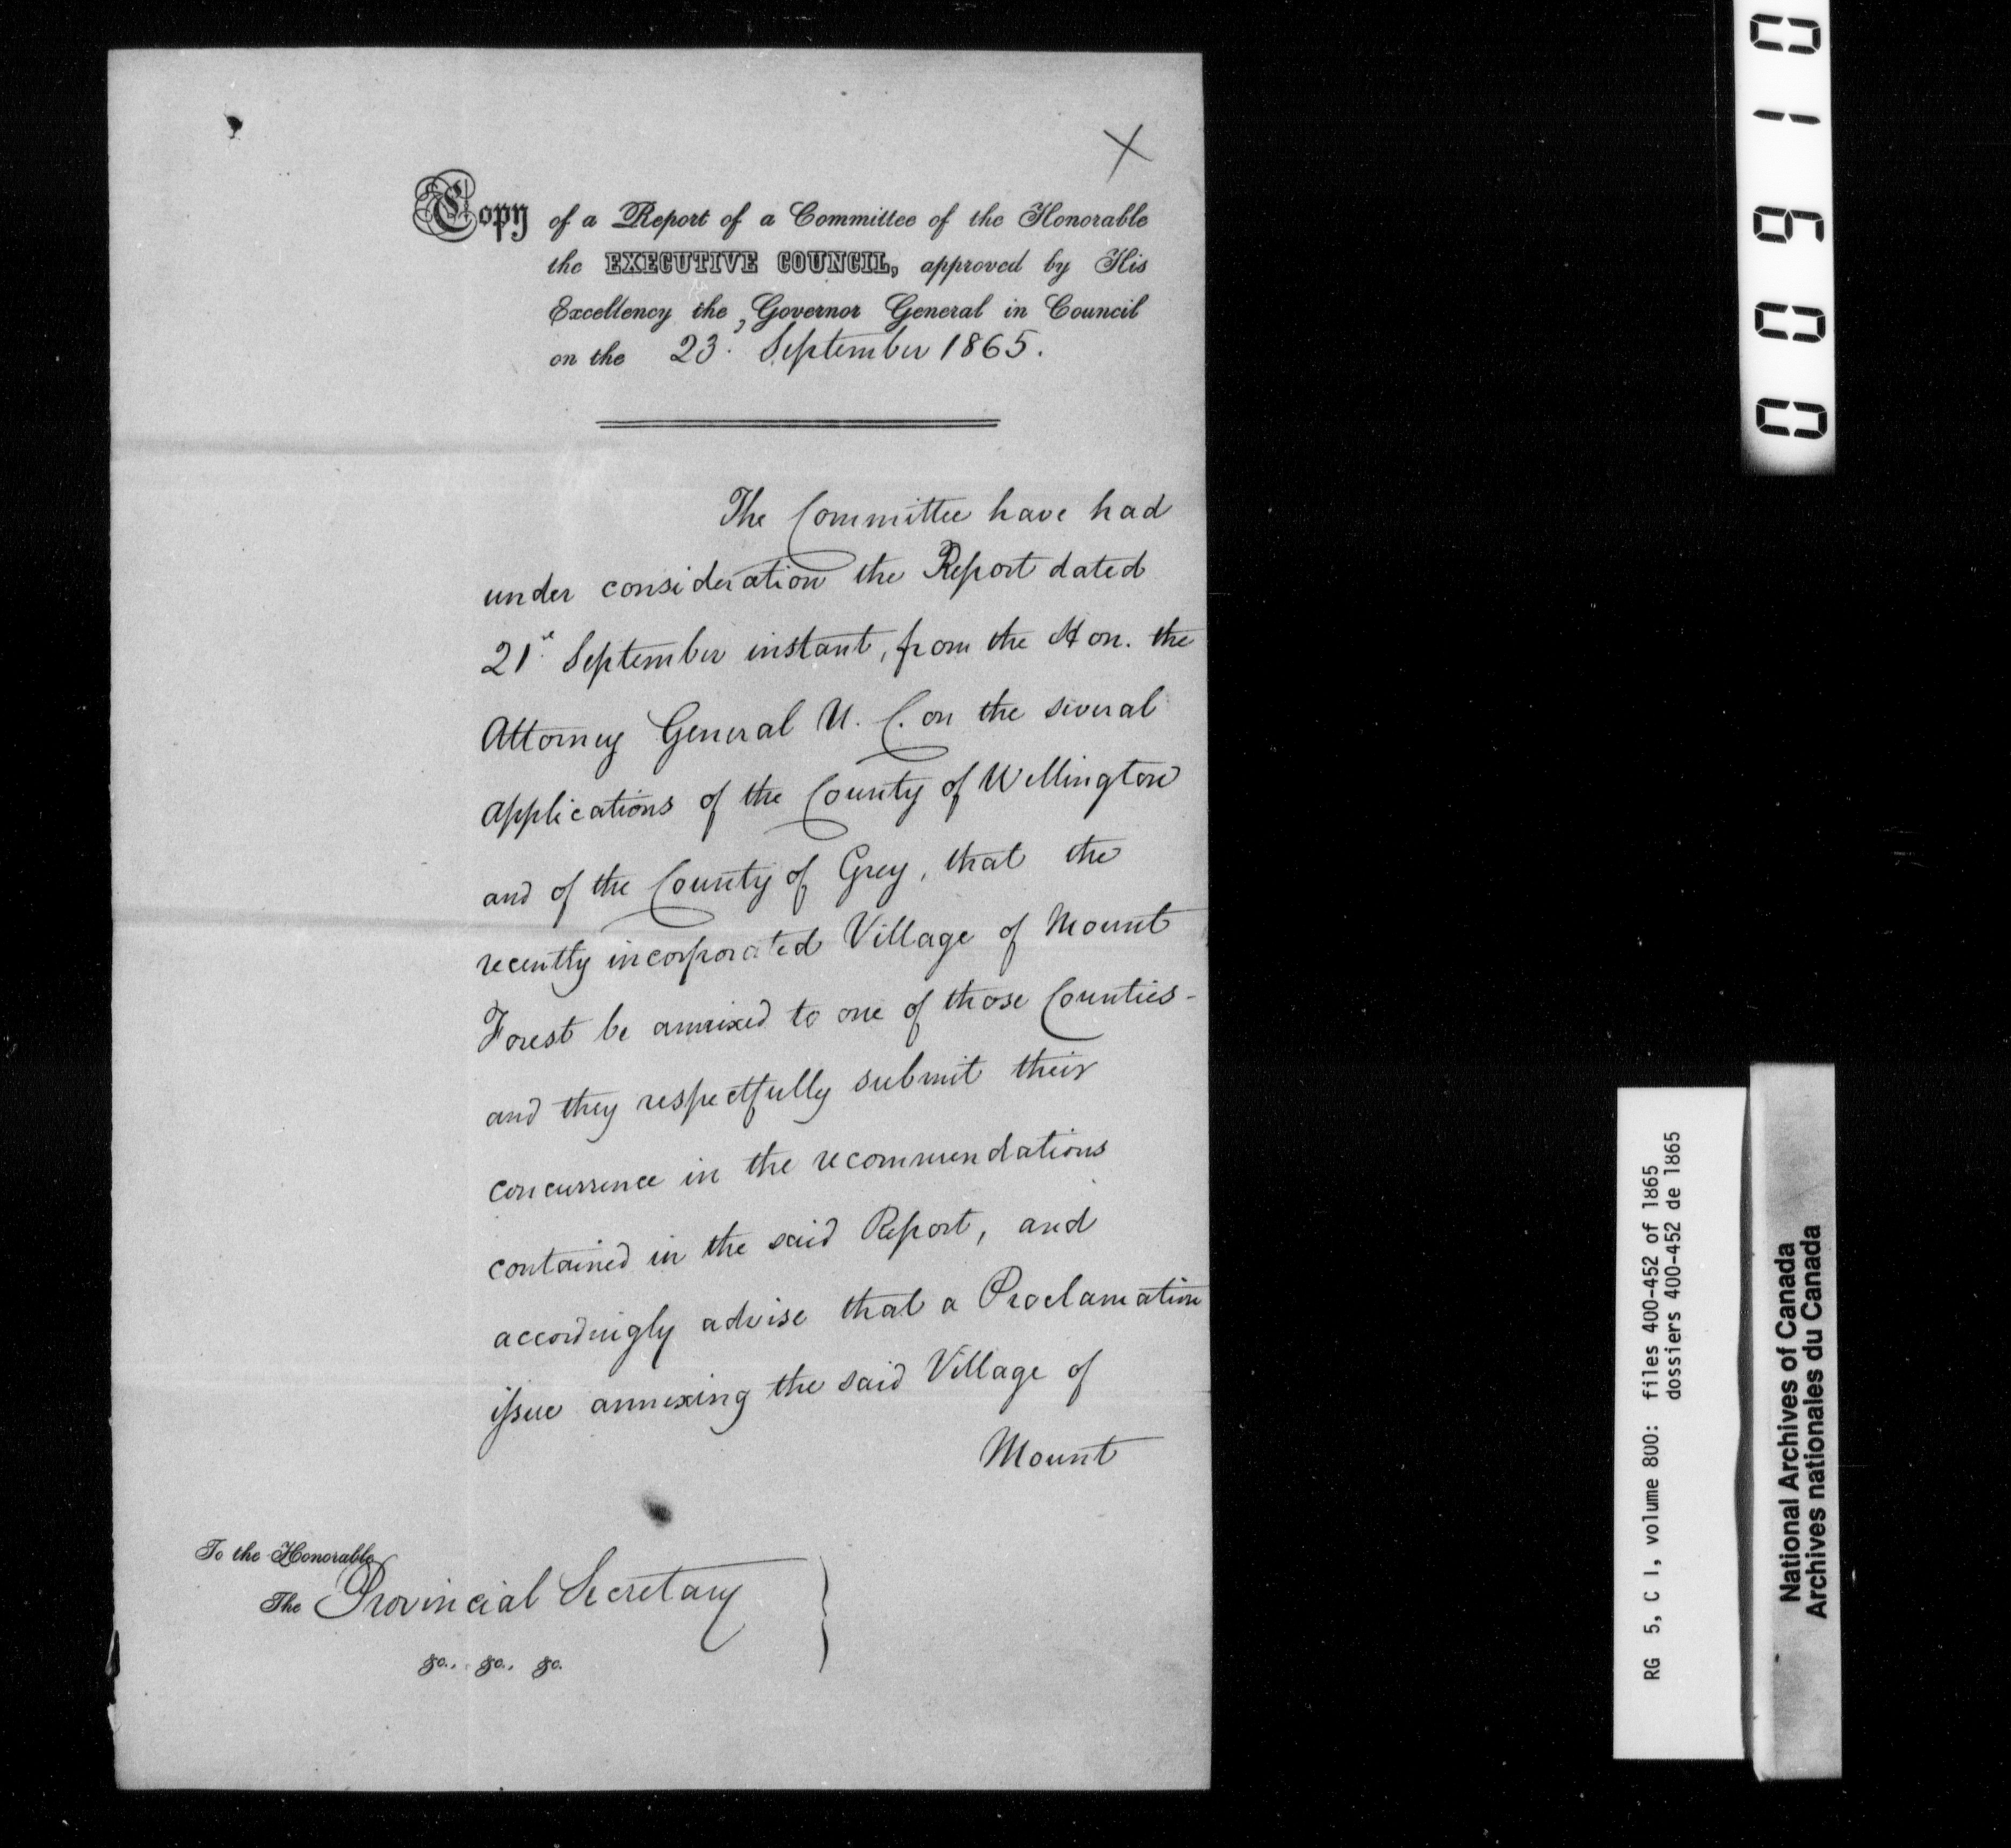 X
Copy of a Report of a Committee of the Honorable
the EXECUTIVE COUNCIL, approved by His
Excellency the, Governor General in Council
on the 23. September 1865.
The Committee have had
under consideration the Report dated
21st September instant, from the Hon. the
Attorney General U. C. on the several
applications of the County of Wellington
and of the County of Grey, that the
recently incorporated Village of Mount
Forest be annexed to one of those Counties -
and they respectfully submit their
concurrence in the recommendations
contained in the said Report, and
accordingly advise that a Proclamation
issue annexing the said Village of
Mount
To the Honorable
The Provincial Secretary
&c., &c., &c.
00910
RG 5, C 1, volume 800: files 400-452 of 1865
dossiers 400-452 de 1865
National Archives of Canada
Archives nationales du Canada